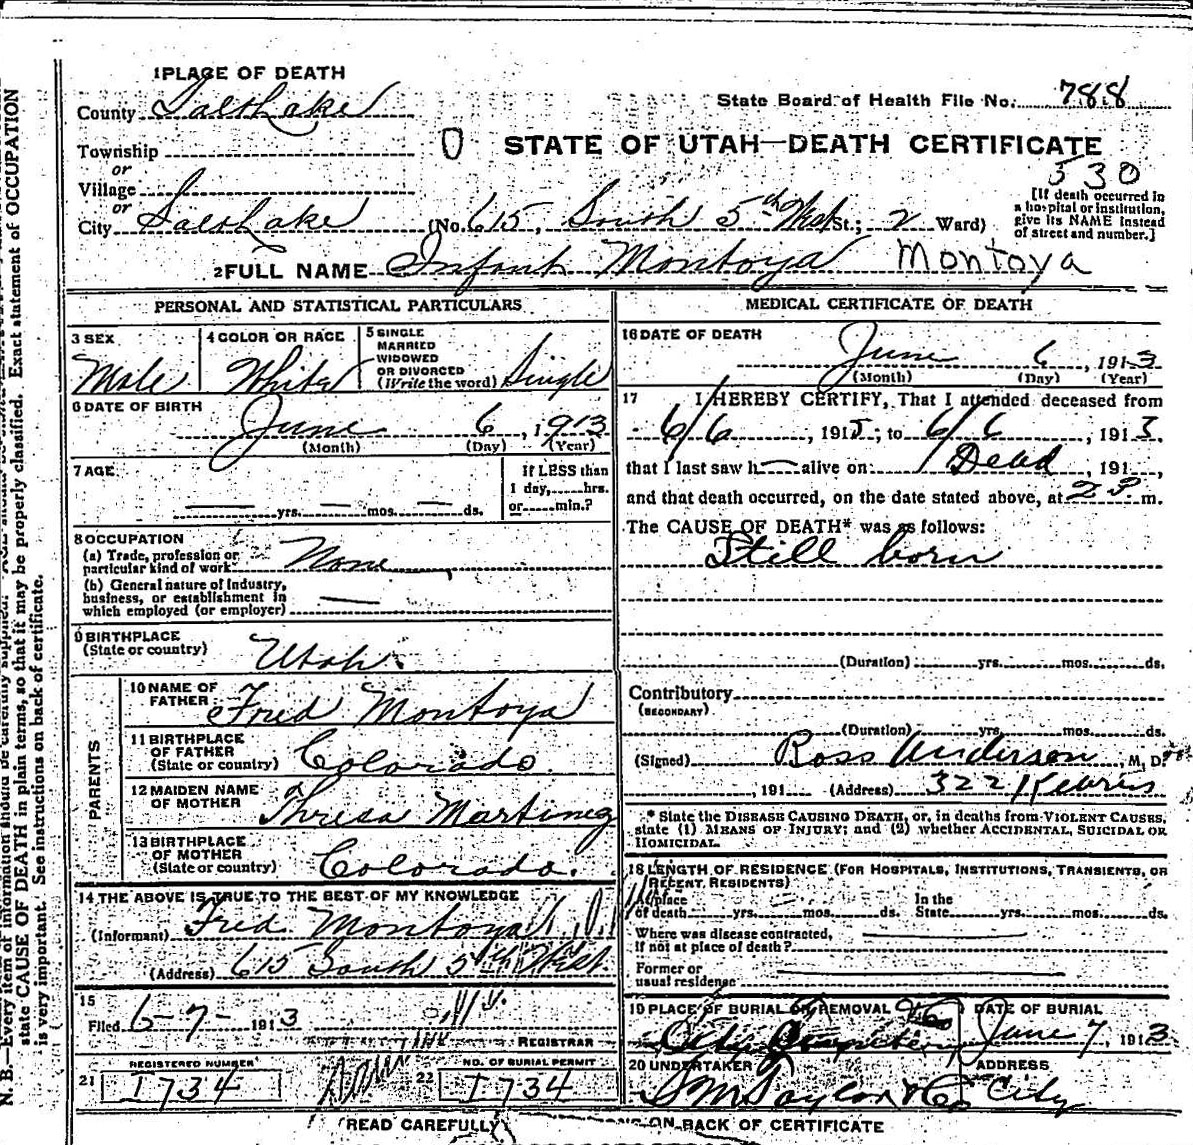 1 PLACE OF DEATH
County Salt Lake
State Board of Health File No. 788
Township
or
Village
or
City Salt Lake (No. 615, South 5th West St.; 2 Ward)
STATE OF UTAH—DEATH CERTIFICATE
530
[If death occurred in
a hospital or institution,
give its NAME instead
of street and number.]
2 FULL NAME Infant Montoya Montoya
PERSONAL AND STATISTICAL PARTICULARS
3 SEX
Male
4 COLOR OR RACE
White
5 SINGLE
MARRIED
WIDOWED
OR DIVORCED
(Write the word) Single
6 DATE OF BIRTH
June 6, 1913
(Month) (Day) (Year)
7 AGE
— yrs. — mos. — ds.
if LESS than
1 day, hrs.
or min.?
8 OCCUPATION
(a) Trade, profession or
particular kind of work None
(b) General nature of industry,
business, or establishment in
which employed (or employer) —
9 BIRTHPLACE
(State or country) Utah.
PARENTS
10 NAME OF
FATHER Fred Montoya
11 BIRTHPLACE
OF FATHER
(State or country) Colorado.
12 MAIDEN NAME
OF MOTHER Thresa Martinez
13 BIRTHPLACE
OF MOTHER
(State or country) Colorado.
14 THE ABOVE IS TRUE TO THE BEST OF MY KNOWLEDGE
(Informant) Fred Montoya
(Address) 615 South 5th West
15
Filed 6-7- 1913
REGISTRAR
REGISTERED NUMBER
21 1734
NO. OF BURIAL PERMIT
22 1734
MEDICAL CERTIFICATE OF DEATH
16 DATE OF DEATH
June 6, 1913
(Month) (Day) (Year)
17 I HEREBY CERTIFY, That I attended deceased from
6/6, 1913; to 6/6, 1913,
that I last saw h— alive on Dead, 191 ,
and that death occurred, on the date stated above, at m.
The CAUSE OF DEATH* was as follows:
Still born
(Duration) yrs. mos. ds.
Contributory
(SECONDARY)
(Duration) yrs. mos. ds.
(Signed) Ross Anderson, M. D.
, 191 (Address) 322 Kearns
* State the DISEASE CAUSING DEATH, or, in deaths from VIOLENT CAUSES,
state (1) MEANS OF INJURY; and (2) whether ACCIDENTAL, SUICIDAL OR
HOMICIDAL.
18 LENGTH OF RESIDENCE (FOR HOSPITALS, INSTITUTIONS, TRANSIENTS, OR
RECENT RESIDENTS)
At place
of death yrs. mos. ds.
In the
State yrs. mos. ds.
Where was disease contracted,
if not at place of death?
Former or
usual residence
19 PLACE OF BURIAL OR REMOVAL
City Cemetery
DATE OF BURIAL
June 7, 1913
20 UNDERTAKER
S M Taylor & Co
ADDRESS
City
READ CAREFULLY ON BACK OF CERTIFICATE
N. B.—Every item of information should be carefully supplied.
state CAUSE OF DEATH in plain terms, so that it may be properly classified. Exact statement of OCCUPATION
is very important. See instructions on back of certificate.